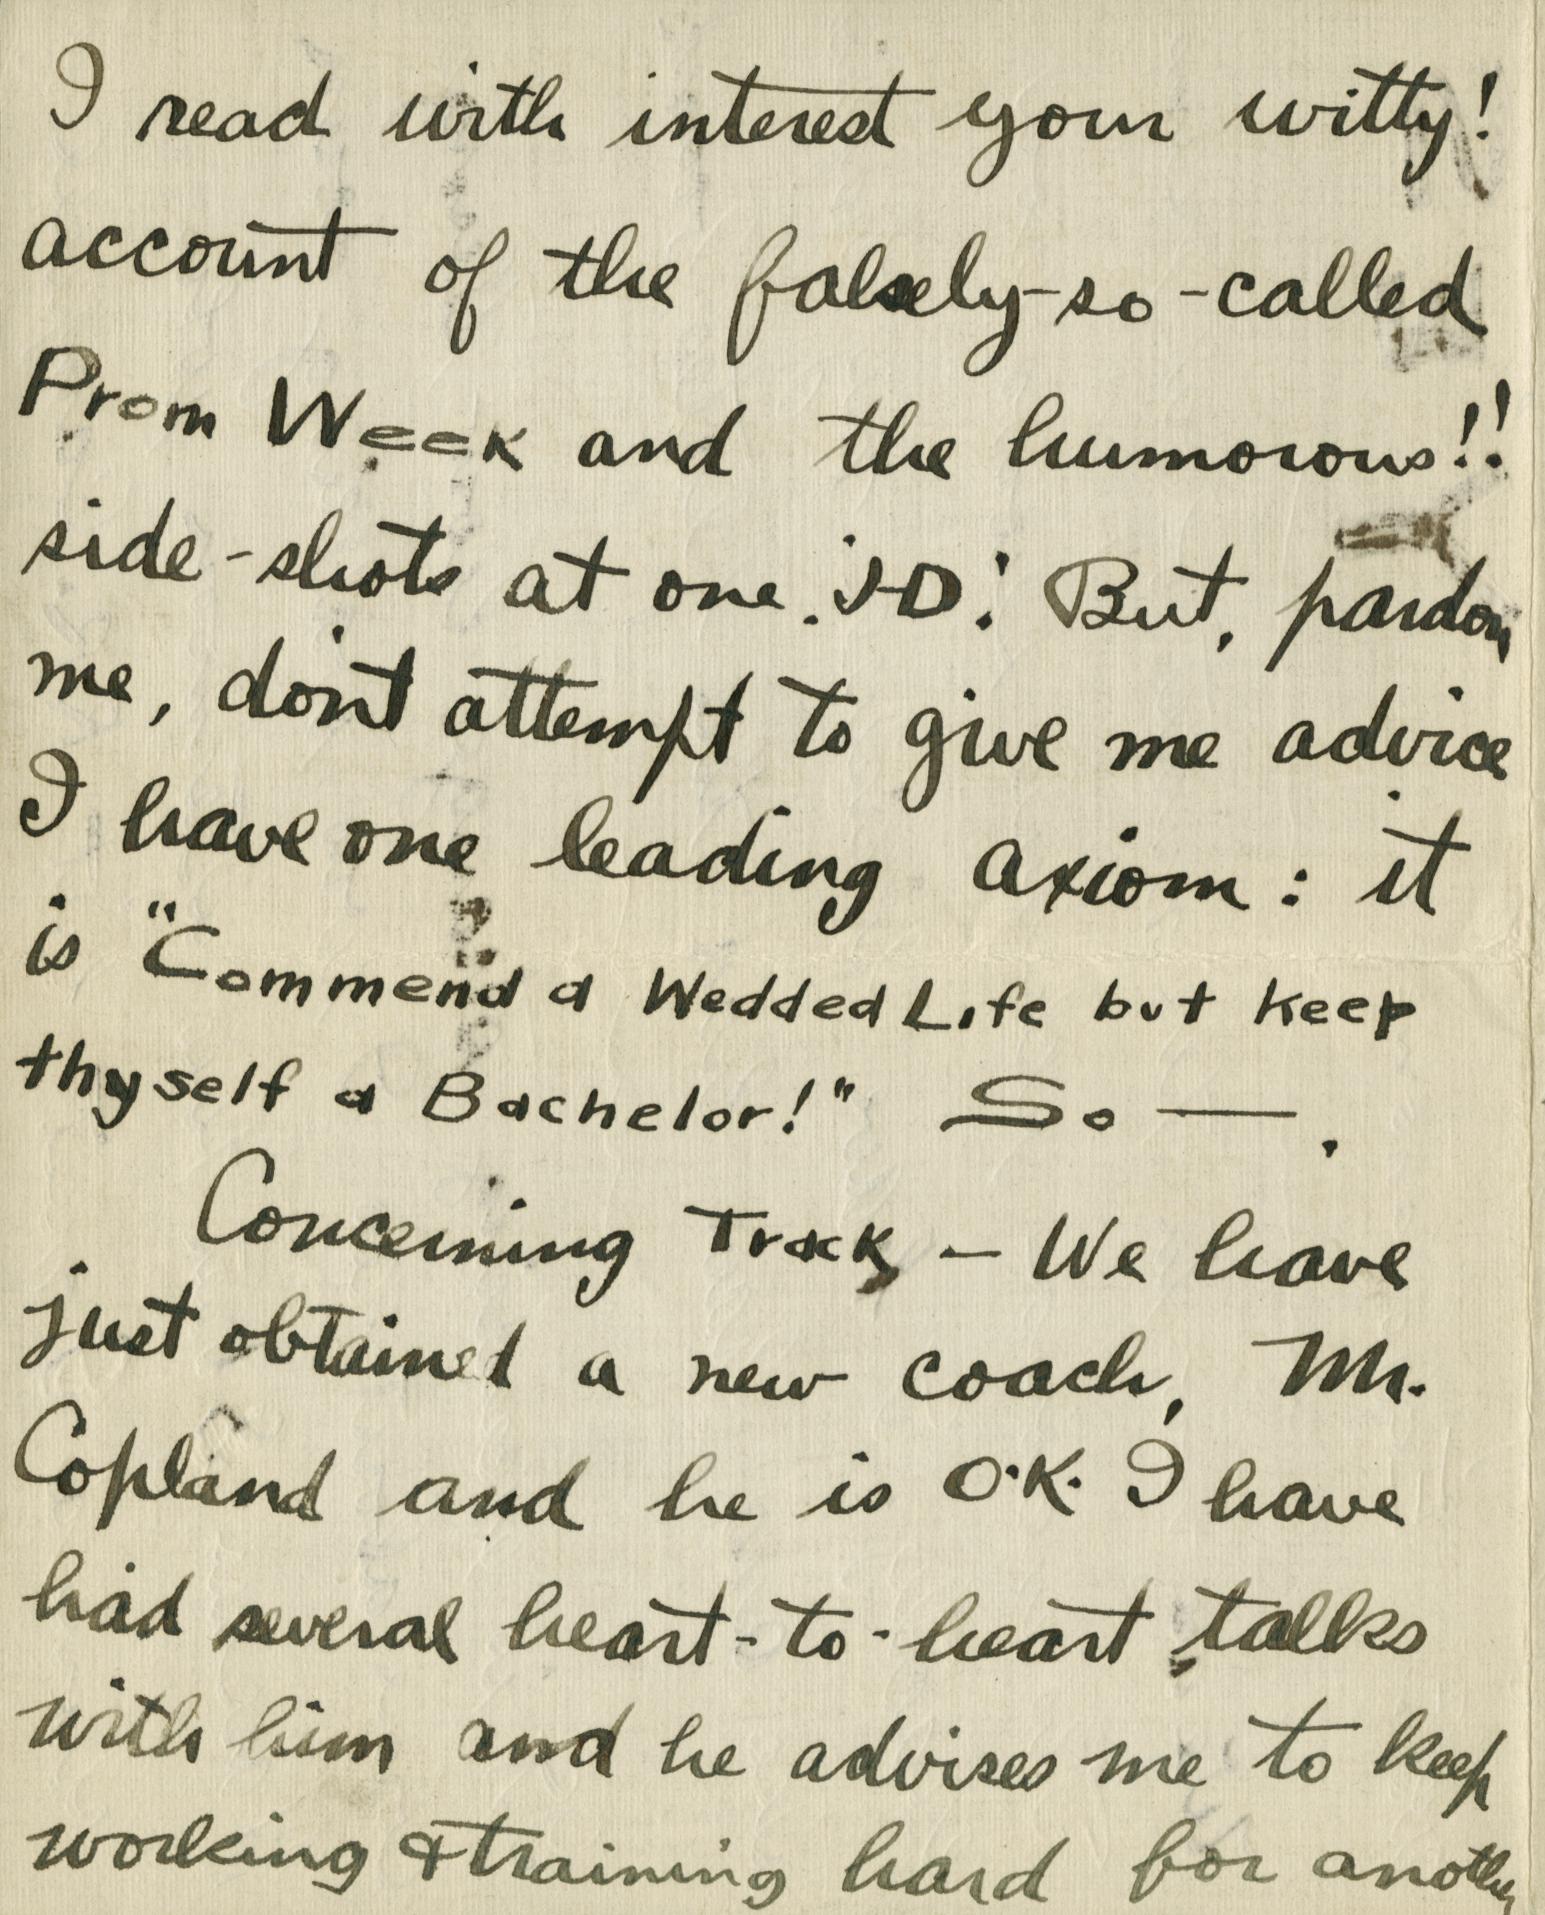 I read with interest your witty!
account of the falsely-so-called
Prom Week and the humorous!!
side-shots at one 'J-D'. But, pardon
me, don't attempt to give me advice
I have one leading axiom: it
is "Commend a Wedded Life but keep
thyself a Bachelor!" So —.
Concerning Track, — We have
just obtained a new coach, Mr.
Copland and he is O.K. I have
had several heart-to-heart talks
with him and he advises me to keep
working & training hard for another